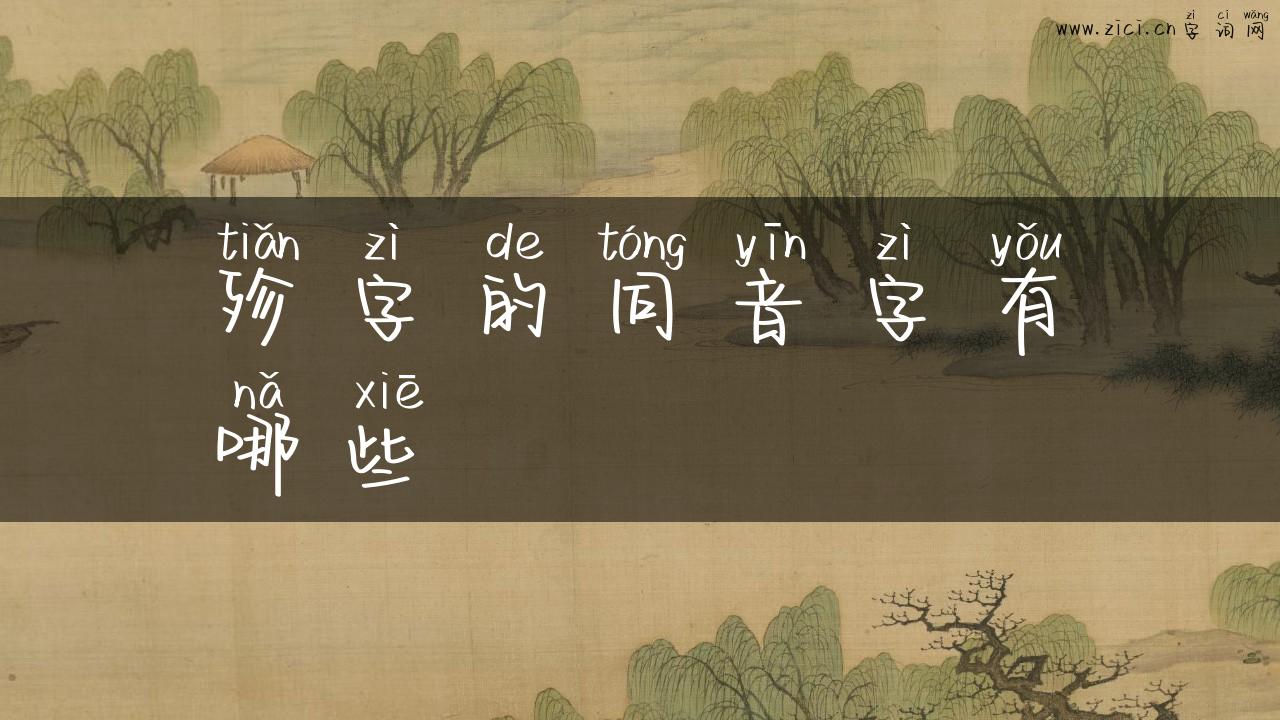 zì cí wǎng
www.zici.cn 字 词 网
tiǎn zì de tóng yīn zì yǒu
殄 字 的 同 音 字 有
nǎ xiē
哪 些